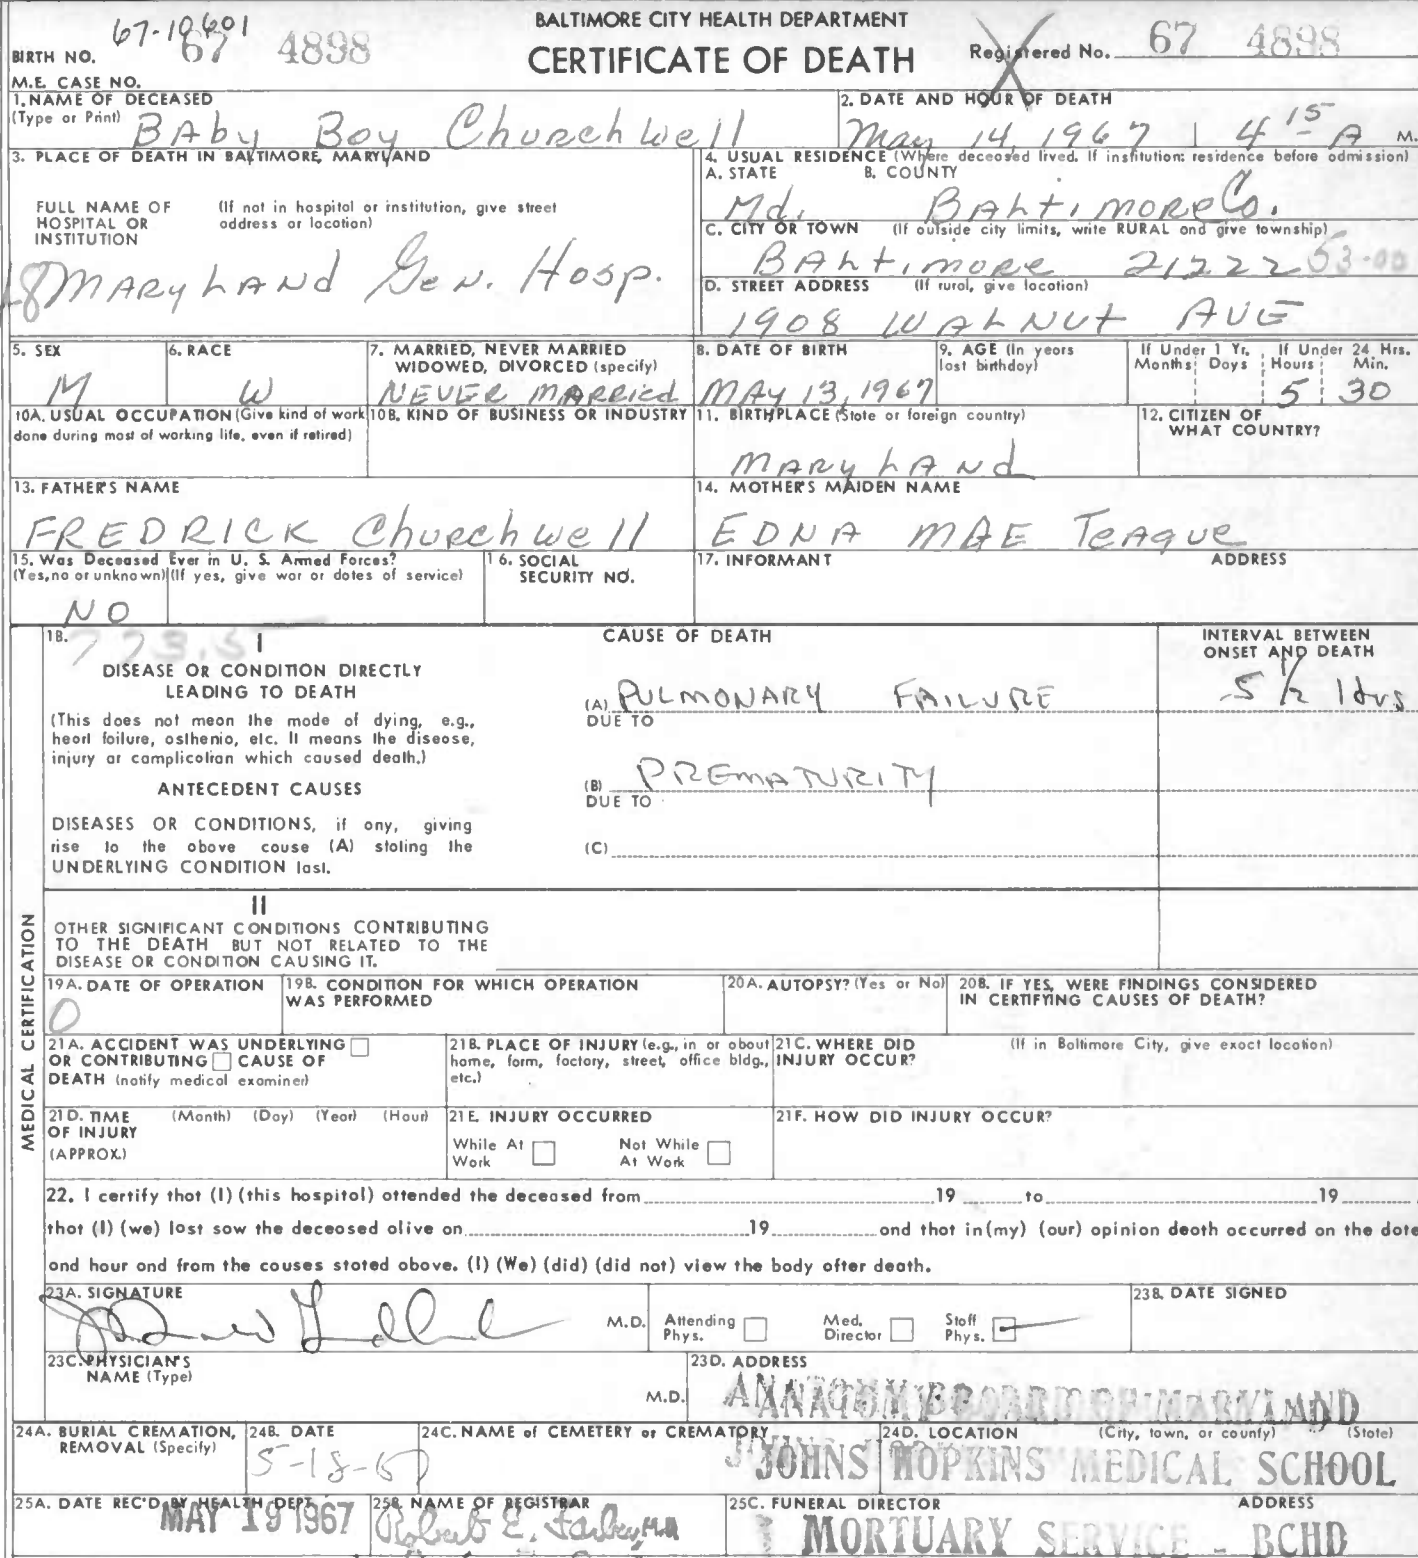 67-10601
BALTIMORE CITY HEALTH DEPARTMENT
BIRTH NO. 67 4898
CERTIFICATE OF DEATH
Registered No. 67 4898
M.E. CASE NO.
1. NAME OF DECEASED
(Type or Print) BAby Boy Churchwell
2. DATE AND HOUR OF DEATH
May 14, 1967 4 15 A M.
3. PLACE OF DEATH IN BALTIMORE, MARYLAND
FULL NAME OF HOSPITAL OR INSTITUTION
(If not in hospital or institution, give street address or location)
MARYLAND Gen. Hosp.
4. USUAL RESIDENCE (Where deceased lived. If institution: residence before admission)
A. STATE B. COUNTY
Md. BALtimore Co.
C. CITY OR TOWN (If outside city limits, write RURAL and give township)
BALtimore 21222 53-00
D. STREET ADDRESS (If rural, give location)
1908 WALNUt AVE
5. SEX
M
6. RACE
W
7. MARRIED, NEVER MARRIED
WIDOWED, DIVORCED (specify)
NEVER MARRied
8. DATE OF BIRTH
MAY 13, 1967
9. AGE (In years
last birthday)
If Under 1 Yr. If Under 24 Hrs.
Months Days Hours Min.
5 30
10A. USUAL OCCUPATION (Give kind of work
done during most of working life, even if retired)
10B. KIND OF BUSINESS OR INDUSTRY
11. BIRTHPLACE (State or foreign country)
MARYLANd
12. CITIZEN OF
WHAT COUNTRY?
13. FATHER'S NAME
FREDRICK Churchwell
14. MOTHER'S MAIDEN NAME
EDNA MAE Teague
15. Was Deceased Ever in U. S. Armed Forces?
(Yes, no or unknown) (If yes, give war or dates of service)
NO
16. SOCIAL
SECURITY NO.
17. INFORMANT ADDRESS
MEDICAL CERTIFICATION
18. 773.5
I
CAUSE OF DEATH
INTERVAL BETWEEN
ONSET AND DEATH
DISEASE OR CONDITION DIRECTLY
LEADING TO DEATH
(A) PULMONARY FAILURE 5 1/2 Hrs
DUE TO
(This does not mean the mode of dying, e.g.,
heart failure, asthenia, etc. It means the disease,
injury or complication which caused death.)
ANTECEDENT CAUSES
(B) PREMATURITY
DUE TO
DISEASES OR CONDITIONS, if any, giving
rise to the above cause (A) stating the
UNDERLYING CONDITION last.
(C)
II
OTHER SIGNIFICANT CONDITIONS CONTRIBUTING
TO THE DEATH BUT NOT RELATED TO THE
DISEASE OR CONDITION CAUSING IT.
19A. DATE OF OPERATION
0
19B. CONDITION FOR WHICH OPERATION
WAS PERFORMED
20A. AUTOPSY? (Yes or No)
20B. IF YES, WERE FINDINGS CONSIDERED
IN CERTIFYING CAUSES OF DEATH?
21A. ACCIDENT WAS UNDERLYING
OR CONTRIBUTING CAUSE OF
DEATH (notify medical examiner)
21B. PLACE OF INJURY (e.g., in or about
home, farm, factory, street, office bldg.,
etc.)
21C. WHERE DID (If in Baltimore City, give exact location)
INJURY OCCUR?
21D. TIME (Month) (Day) (Year) (Hour)
OF INJURY
(APPROX.)
21E. INJURY OCCURRED
While At Work Not While At Work
21F. HOW DID INJURY OCCUR?
22. I certify that (I) (this hospital) attended the deceased from 19 to 19
that (I) (we) last saw the deceased alive on 19 and that in (my) (our) opinion death occurred on the date
and hour and from the causes stated above. (I) (We) (did) (did not) view the body after death.
23A. SIGNATURE
M.D. Attending Phys. Med. Director Staff Phys.
23B. DATE SIGNED
23C. PHYSICIAN'S
NAME (Type)
M.D.
23D. ADDRESS
ANATOMY BOARD OF MARYLAND
24A. BURIAL CREMATION,
REMOVAL (Specify)
24B. DATE
5-18-67
24C. NAME of CEMETERY or CREMATORY
24D. LOCATION (City, town, or county) (State)
JOHNS HOPKINS MEDICAL SCHOOL
25A. DATE REC'D BY HEALTH DEPT.
MAY 19 1967
25B. NAME OF REGISTRAR
Robert E. Farber, M.D.
25C. FUNERAL DIRECTOR ADDRESS
MORTUARY SERVICE - BCHD